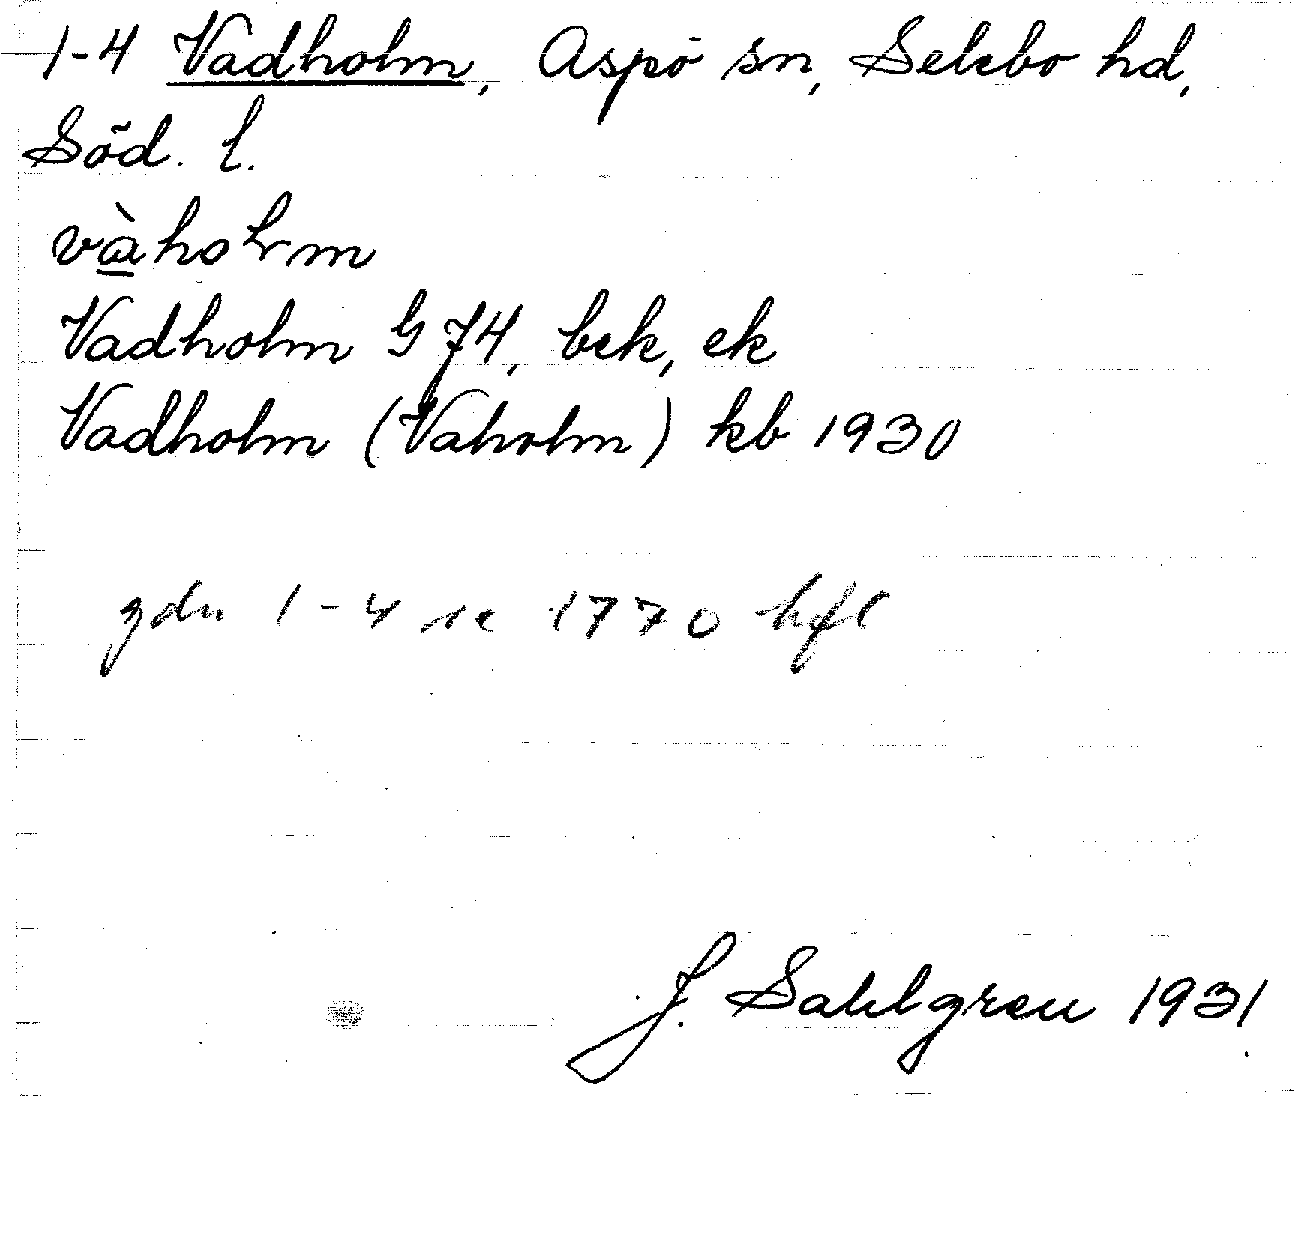 1-4 Vadholm, Aspö sn, Selebo hd,
Söd. l.
vàhoɫm
Vadholm G 74, bek, ek
Vadholm (Vaholm) kb 1930
gdn 1-4 se 1770 hfl
J. Sahlgren 1931